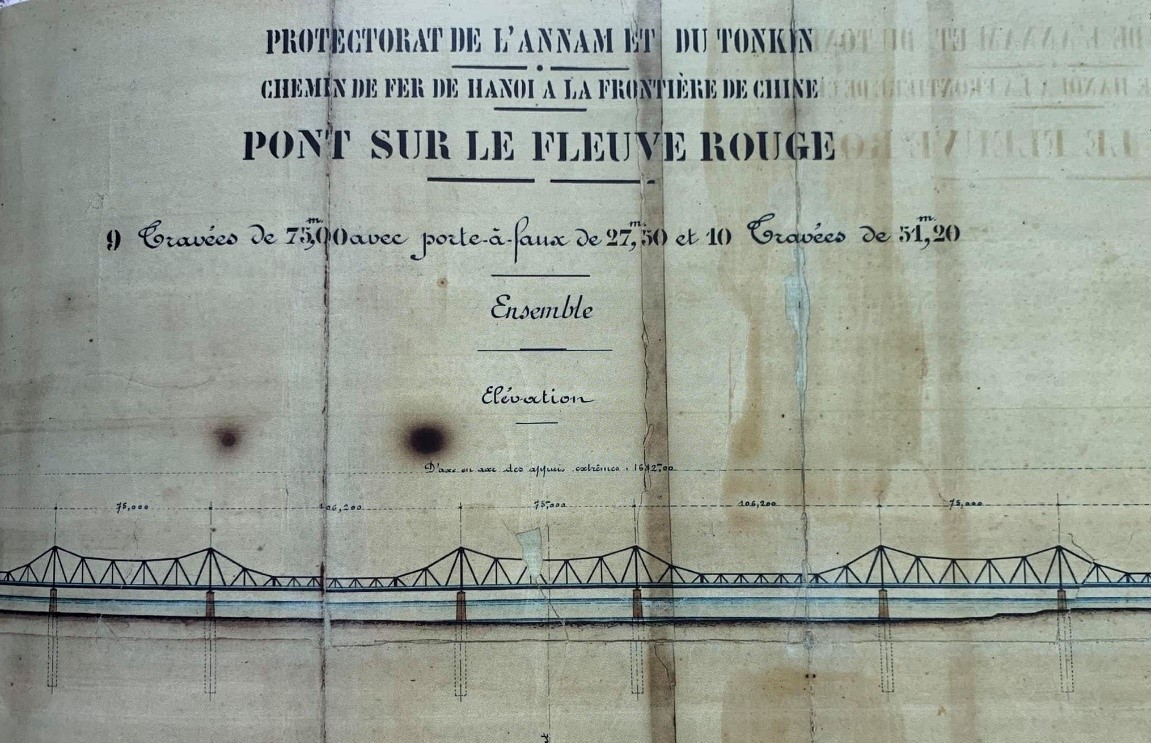 PROTECTORAT DE L'ANNAM ET DU TONKIN
CHEMIN DE FER DE HANOI A LA FRONTIÈRE DE CHINE
PONT SUR LE FLEUVE ROUGE
9 Travées de 75,00 m. avec porte-à-faux de 27,50 m. et 10 Travées de 51,20 m.
Ensemble
Elévation
D'axe en axe des appuis extrêmes : 1682,00
75,000 106,200 75,000 106,200 75,000